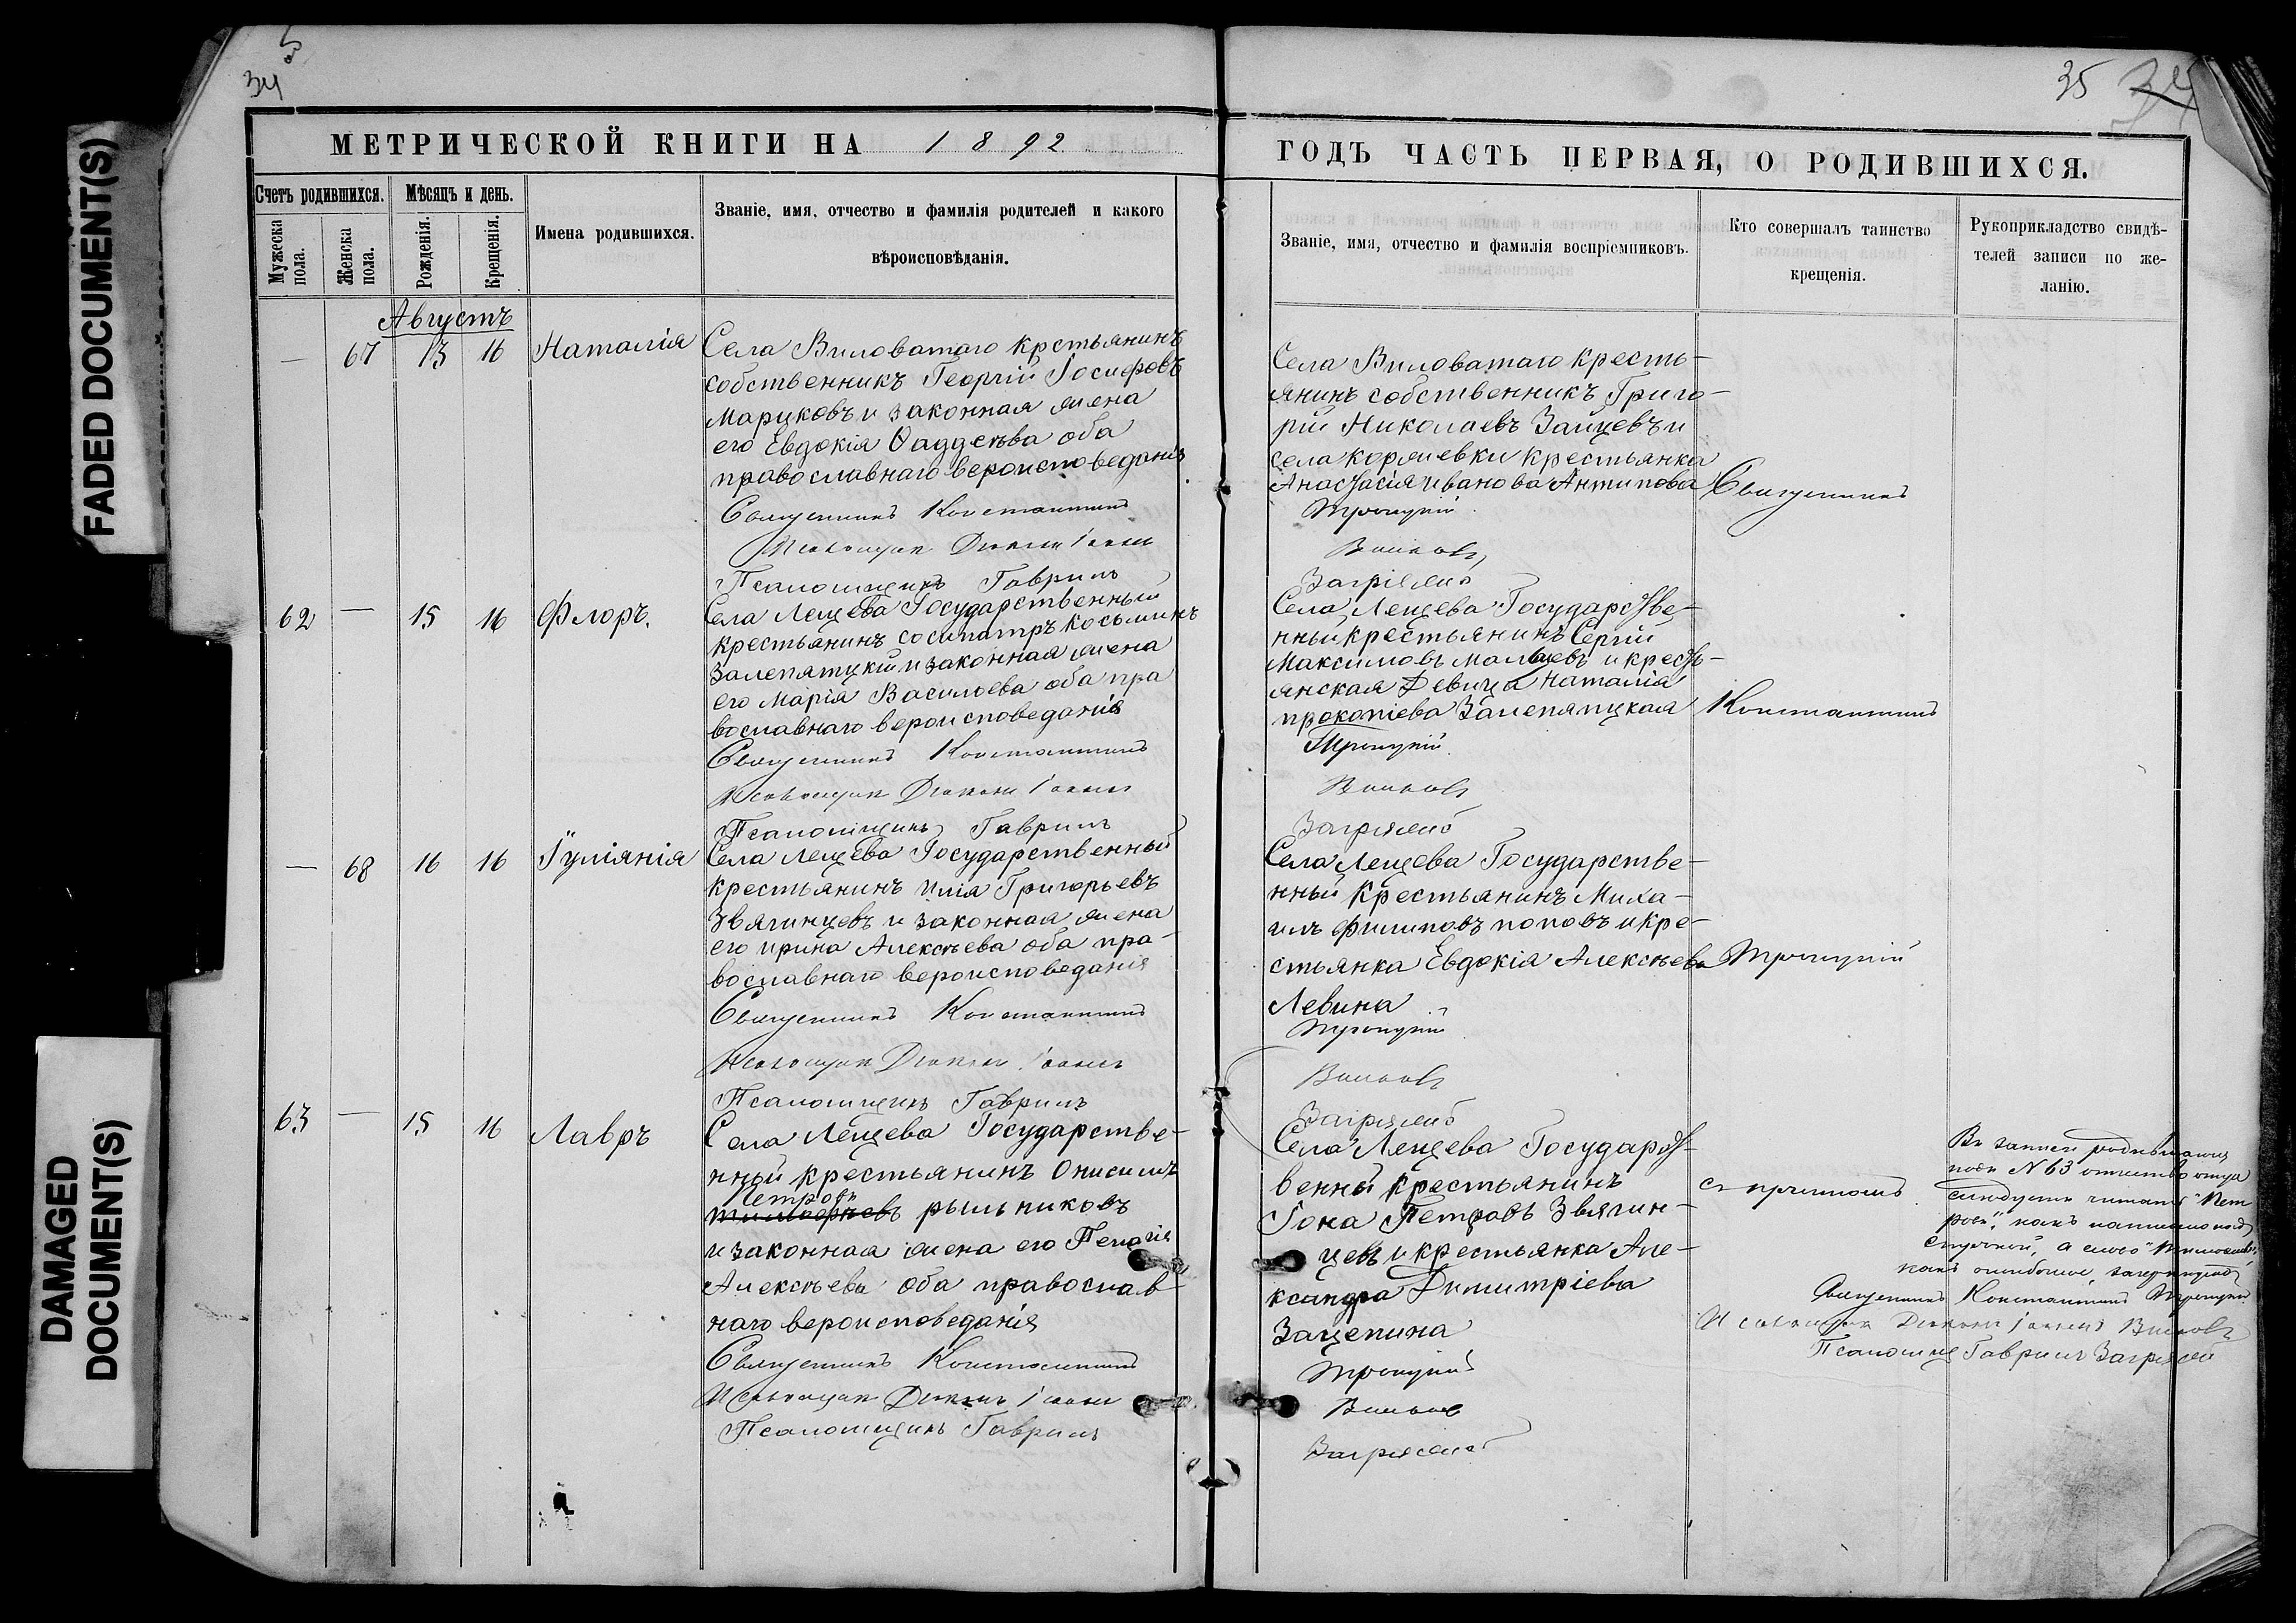 34
35
МЕТРИЧЕСКОЙ КНИГИ НА 1892
ГОДЪ ЧАСТЬ ПЕРВАЯ, О РОДИВШИХСЯ.
Счетъ родившихся.
Мѣсяцъ и день.
Мужеска пола.
Женска пола.
Рожденія.
Крещенія.
Имена родившихся.
Званіе, имя, отчество и фамилія родителей и какого
вѣроисповѣданія.
Званіе, имя, отчество и фамилія воспріемниковъ.
Кто совершалъ таинство
крещенія.
Рукоприкладство свидѣ-
телей записи по же-
ланію.
Августъ
— 67 13 16 Наталія
Села Виловатаго крстьянинъ
собственникъ Георгій Іосифовъ
Марцковъ и законная жена
его Евдокія Ѳаддеѣва оба
православнаго вероисповеданія
Священникъ Константинъ
Псаломщик Диакон Іоанн
Псаломщикъ Гавриилъ
Села Виловатаго кресть-
янинъ собственникъ Григо-
рій Николаевъ Зайцевъ и
села коряевки крестьянка
Анастасія Иванова Антипова
Троицкій
Вилковъ
Священникъ
62 — 15 16 Флоръ.
Села Лещева Государственный
крестьянинъ сосипатръ косьминъ
Залепятцкій и законная жена
его Марія Васильева оба пра
вославнаго вероисповеданія
Священникъ Константинъ
Псаломщик Диакон Іоанн
Псаломщикъ Гавриилъ
Села Лещева Государстве-
нный крестьянинъ Сергій
Максимовъ Мальцевъ и кресть-
янская Девица Наталія
прокопіева Залепятцкая
Троицкій
Вилковъ
Константинъ
— 68 16 16 Іуліянія
Села Лещева Государственный
крестьянинъ Илія Григорьевъ
Звягинцевъ и законная жена
его Ирина Алексѣева оба пра-
вославнаго вероисповеданія
Священникъ Константинъ
Псаломщик Диакон Іоаннъ
Псаломщикъ Гавриилъ
Села Лещева Государстве-
нный крестьянинъ Миха-
илъ Филиповъ поповъ и кре-
стьянка Евдокія Алексѣева
Левина
Троицкій
Вилковъ
Троицкій
63 — 15 16 Лавръ
Села Лещева Государстве-
нный крестьянинъ Онисимъ
Петровъ
Тимофѣевъ рыльниковъ
и законная жена его Пелагія
Алексѣева оба православ
наго вероисповеданія
Священникъ Константинъ
Псаломщик Диакон Іоанн
Псаломщикъ Гавриилъ
Села Лещева Государст-
венный крестьянинъ
Іона Петровъ Звягин-
цевъ и крестьянка Але-
ксандра Димитріева
Зацепина
Троицкій
Вилковъ
съ причтомъ.
Въ записи родившагося
подъ № 63 отчество отца
слѣдуетъ читать "Пет
ровъ", какъ написано надъ
строчкой, а слово "Тимофѣевъ",
какъ ошибочное, зачеркнуто
Священникъ Константинъ Троицкій
Псаломщик Диакон Іоаннъ Вилковъ
Псаломщик Гавриилъ
FADED DOCUMENT(S)
DAMAGED
DOCUMENT(S)